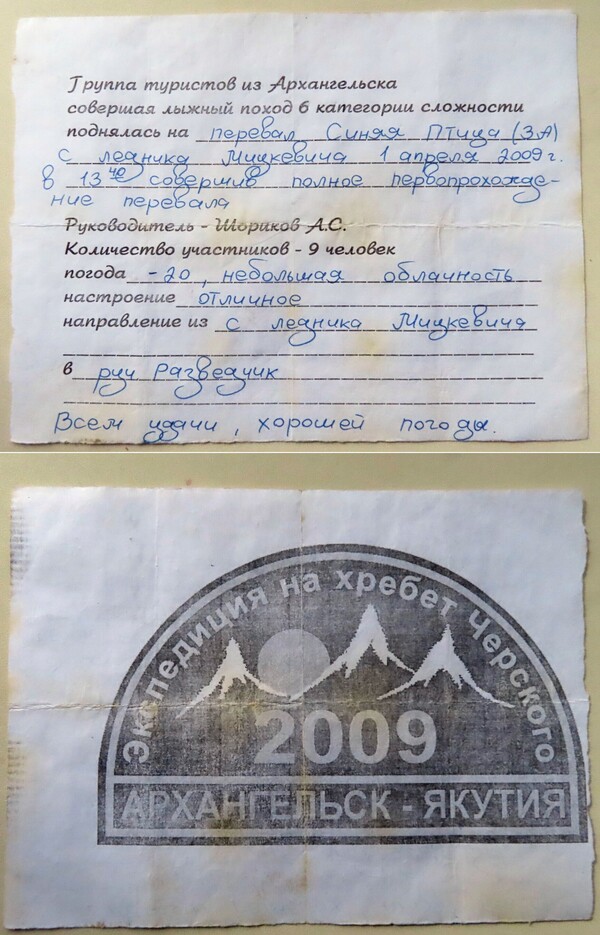 Группа туристов из Архангельска
совершая лыжный поход 6 категории сложности
поднялась на перевал Синяя Птица (3А)
с ледника Мицкевича 1 апреля 2009 г.
в 13 40 совершив полное первопрохожде-
ние перевала
Руководитель - Шориков А.С.
Количество участников - 9 человек
погода -20, небольшая облачность
настроение отличное
направление из с ледника Мицкевича
в руч Разведчик
Всем удачи, хорошей погоды.
Экспедиция на хребет Черского
2009
АРХАНГЕЛЬСК - ЯКУТИЯ